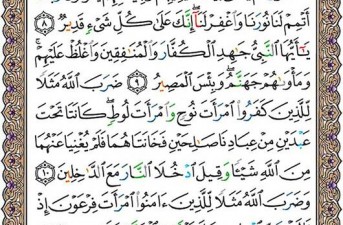 أَتْمِمْ لَنَا نُورَنَا وَٱغْفِرْ لَنَآ ۖ إِنَّكَ عَلَىٰ كُلِّ شَىْءٍ قَدِيرٌ ٨
يَٰٓأَيُّهَا ٱلنَّبِىُّ جَٰهِدِ ٱلْكُفَّارَ وَٱلْمُنَٰفِقِينَ وَٱغْلُظْ عَلَيْهِمْ ۚ
وَمَأْوَىٰهُمْ جَهَنَّمُ ۖ وَبِئْسَ ٱلْمَصِيرُ ٩ ضَرَبَ ٱللَّهُ مَثَلًا
لِّلَّذِينَ كَفَرُوا۟ ٱمْرَأَتَ نُوحٍ وَٱمْرَأَتَ لُوطٍ ۖ كَانَتَا تَحْتَ
عَبْدَيْنِ مِنْ عِبَادِنَا صَٰلِحَيْنِ فَخَانَتَاهُمَا فَلَمْ يُغْنِيَا عَنْهُمَا
مِنَ ٱللَّهِ شَيْـًٔا وَقِيلَ ٱدْخُلَا ٱلنَّارَ مَعَ ٱلدَّٰخِلِينَ ١٠
وَضَرَبَ ٱللَّهُ مَثَلًا لِّلَّذِينَ ءَامَنُوا۟ ٱمْرَأَتَ فِرْعَوْنَ إِذْ